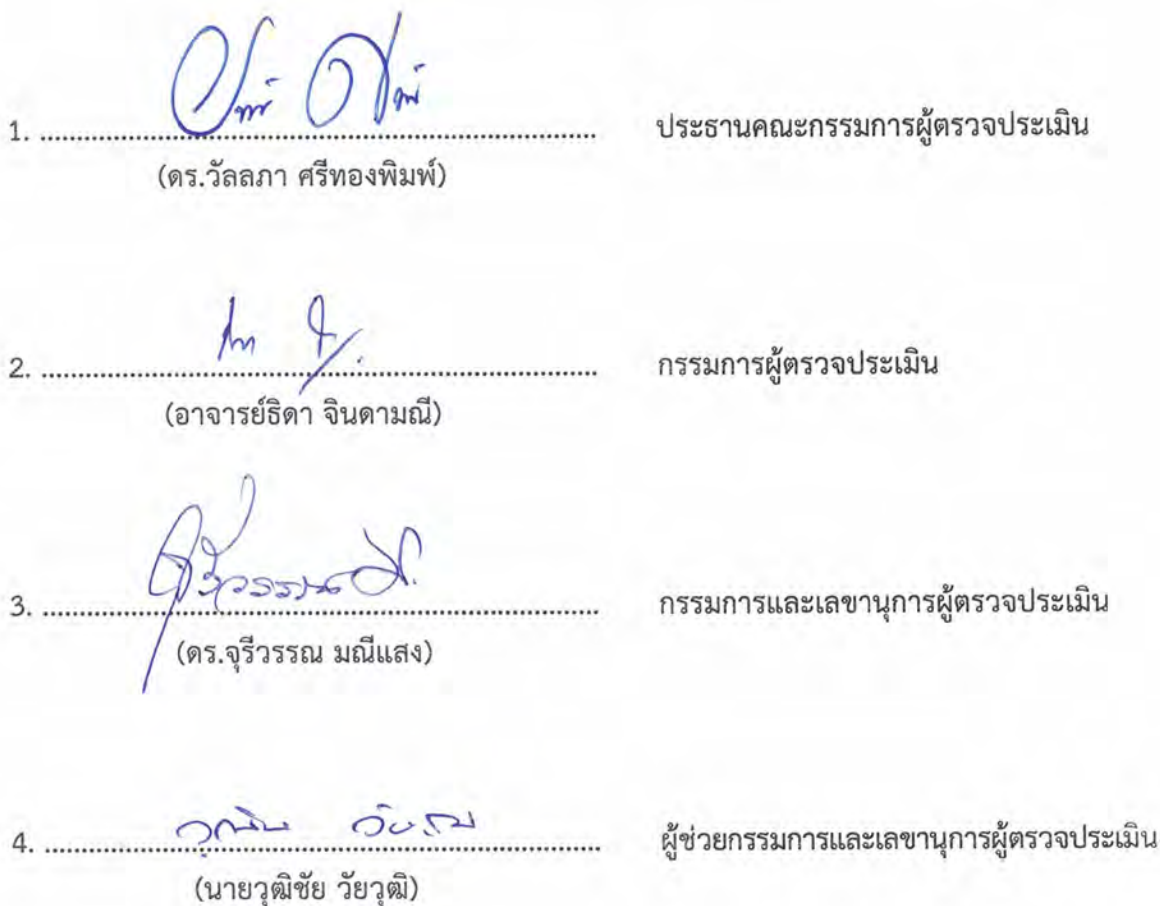 1. ........ ประธานคณะกรรมการผู้ตรวจประเมิน
(ดร.วัลลภา ศรีทองพิมพ์)
2. ........ กรรมการผู้ตรวจประเมิน
(อาจารย์ธิดา จินดามณี)
3. ........ กรรมการและเลขานุการผู้ตรวจประเมิน
(ดร.จุรีวรรณ มณีแสง)
4. ........ ผู้ช่วยกรรมการและเลขานุการผู้ตรวจประเมิน
(นายวุฒิชัย วัยวุฒิ)